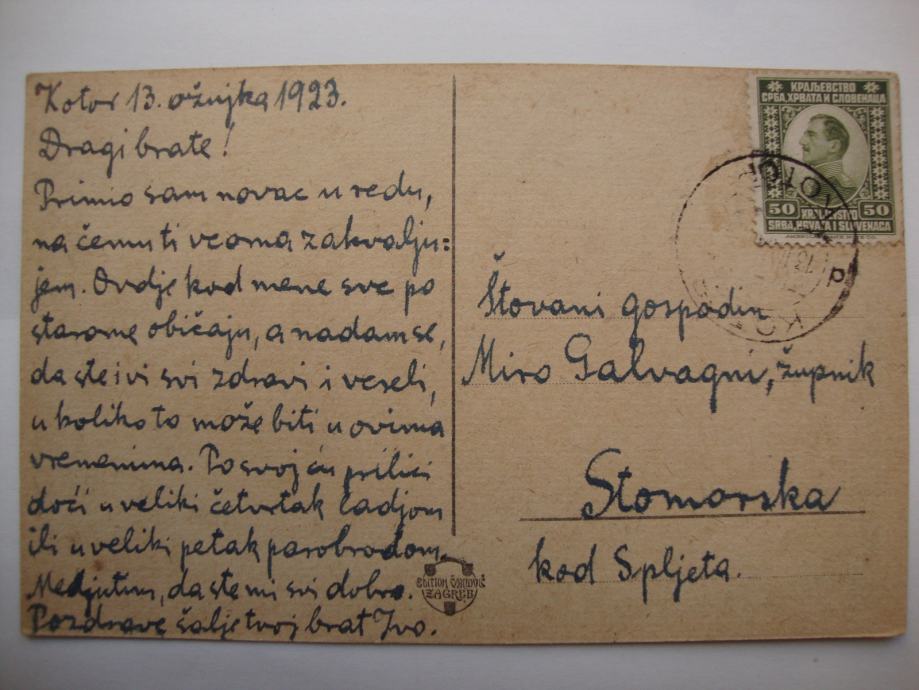 Kotor 13. ožujka 1923.
Dragi brate!
Primio sam novac u redu,
na čemu ti veoma zahvalju=
jem. Ovdje kod mene sve po
starome običaju, a nadam se,
da ste i vi svi zdravi i veseli,
u koliko to može biti u ovima
vremenima. Po svoj ću prilici
doći u veliki četvrtak ladjom
ili u veliki petak parobrodom.
Medjutim, da ste mi svi dobro.
Pozdrave šalje tvoj brat Ivo.
EDITION
ZAGREB
КРАЉЕВСТВО
СРБА, ХРВАТА И СЛОВЕНАЦА
50 KRALJEVSTVO 50
SRBA, HRVATA I SLOVENACA
KOTOR
Štovani gospodin
Miro Galvagni, župnik
Stomorska
kod Spljeta.